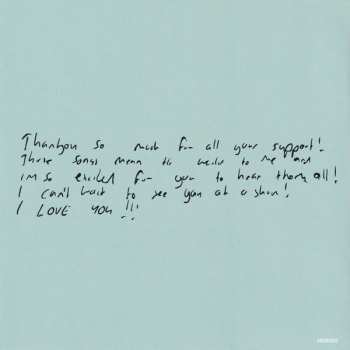 Thankyou so much for all your support!
These songs mean the world to me and
im so excited for you to hear them all!
I can't wait to see you at a show!
I LOVE YOU!!!